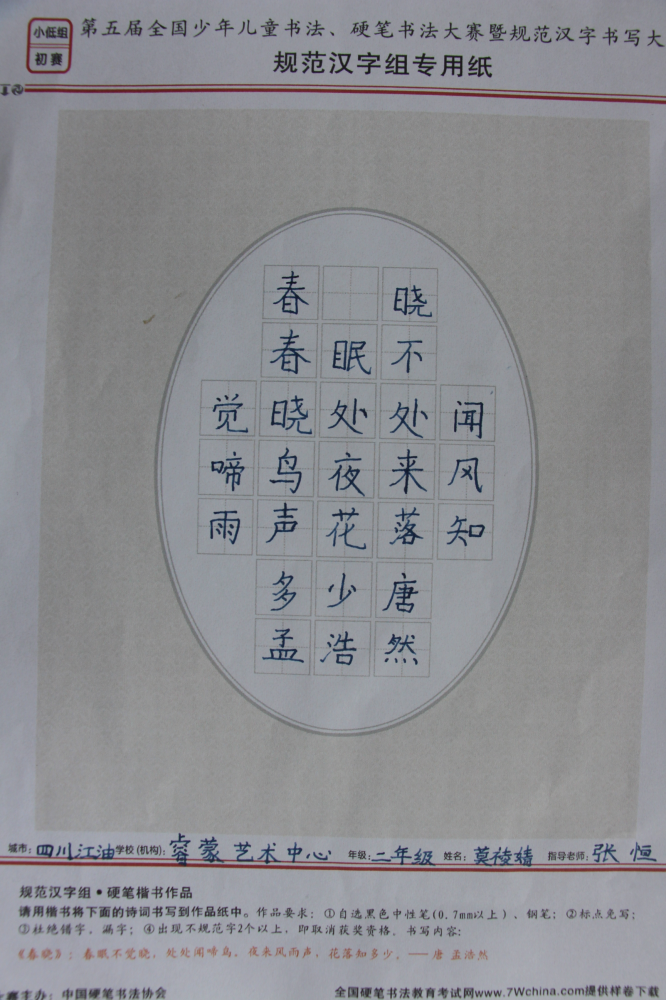 小低组
初赛
第五届全国少年儿童书法、硬笔书法大赛暨规范汉字书写大
规范汉字组专用纸
春 晓
春眠不
觉晓处处闻
啼鸟夜来风
雨声花落知
多少唐
孟浩然
城市: 四川江油 学校(机构): 睿蒙艺术中心 年级: 二年级 姓名: 莫祾嫱 指导老师: 张恒
规范汉字组•硬笔楷书作品
请用楷书将下面的诗词书写到作品纸中。作品要求:①自选黑色中性笔(0.7mm以上)、钢笔;②标点免写;
③杜绝错字,漏字;④出现不规范字2个以上,即取消获奖资格,书写内容:
《春晓》:春眠不觉晓,处处闻啼鸟,夜来风雨声,花落知多少,——唐 孟浩然
大赛主办:中国硬笔书法协会 全国硬笔书法教育考试网www.7Wchina.com提供样卷下载